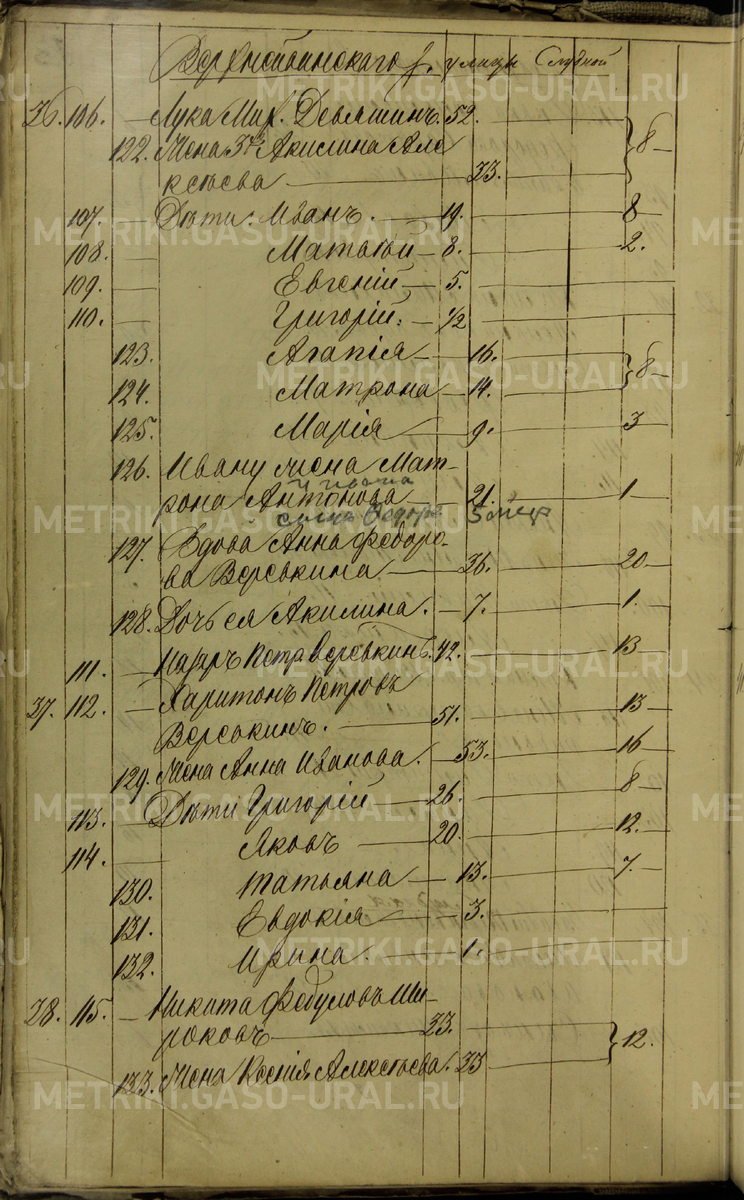 улицы Слудной
36. 106. — Лука Мих. Девяшинъ. 52.
122. Жена 3ья Акилина Але
ксѣева — 33. } 8
107. — Дѣти: Иванъ. — 19. — 8
108. — Матвѣй — 8. — 2.
109. — Евгеній — 5.
110. — Григорій. — 1/2
123. Агапія — 16.
124. Матрона — 14. } 8
125. Марія — 9. — 3
126. Ивану жена Мат-
рона Антонова — 21. — 1
у Ивана
сынъ Ѳедоръ 5 мѣс
127. Вдова Анна Ѳедоро-
ва Веревкина — 36. — 20
128. Дочь ея Акилина. — 7. — 1.
111. — Назаръ Петр. Веревкинъ. 42. — 13
37. 112. — Харитонъ Петровъ
Веревкинъ. — 51. — 13
129. Жена Анна Иванова. — 53. — 16
113. — Дѣти Григорій — 26. — 8
114. — Яковъ — 20. — 12.
130. Татьяна — 13. — 7
131. Евдокія — 3.
132. Ирина. — 1.
38. 115. — Никита Ѳедуловъ Ши-
роковъ — 33.
133. Жена Ксенія Алексѣева. 33 } 12.
METRIKI.GASO-URAL.RU